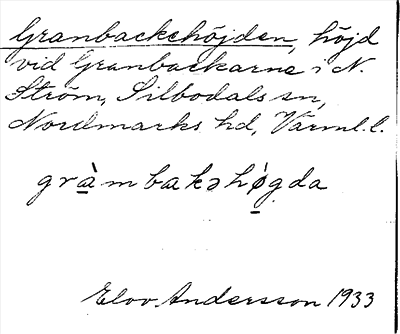 Granbackehöjden, höjd
vid Granbackarna i N.
Ström, Silbodals sn,
Nordmarks hd, Värml. l.
gràmbakəhǿgda
Elov Andersson 1933